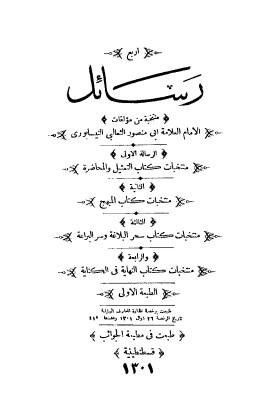 اربع
رسائل
منتخبة من مؤلفات
الامام العلامة ابى منصور الثعالبى النيسابورى
الرسالة الاولى
منتخبات كتاب التمثيل والمحاضرة
الثانية
منتخبات كتاب المبهج
الثالثة
منتخبات كتاب سحر البلاغة وسر البراعة
والرابعة
منتخبات كتاب النهاية فى الكناية
الطبعة الاولى
طبعت برخصة نظارة المعارف الجليلة
تاريخ الرخصة ٢٦ ١٣٠١ وعددها ٤٤٥
طبعت فى مطبعة الجوائب
قسطنطينية
١٣٠١